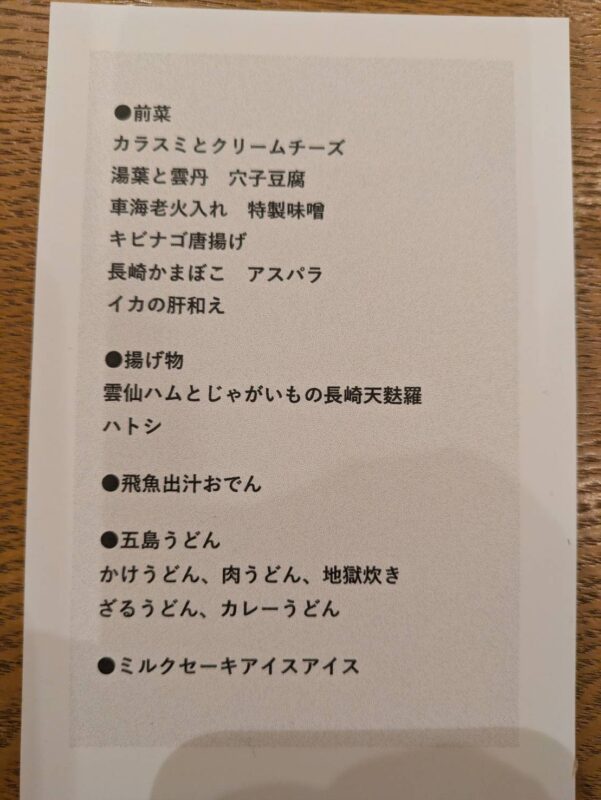 ●前菜
カラスミとクリームチーズ
湯葉と雲丹　穴子豆腐
車海老火入れ　特製味噌
キビナゴ唐揚げ
長崎かまぼこ　アスパラ
イカの肝和え
●揚げ物
雲仙ハムとじゃがいもの長崎天麩羅
ハトシ
●飛魚出汁おでん
●五島うどん
かけうどん、肉うどん、地獄炊き
ざるうどん、カレーうどん
●ミルクセーキアイスアイス